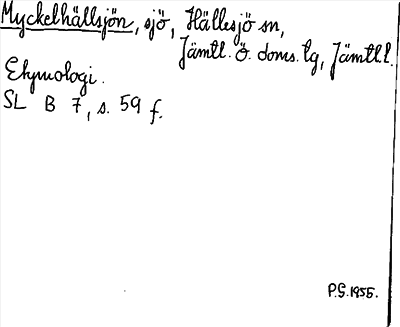 Myckelhällsjön, sjö, Hällesjö sn,
Jämtl. ö. doms. lg, Jämtl. l.
Etymologi.
SL B 7, s. 59 f.
P.G. 1955.